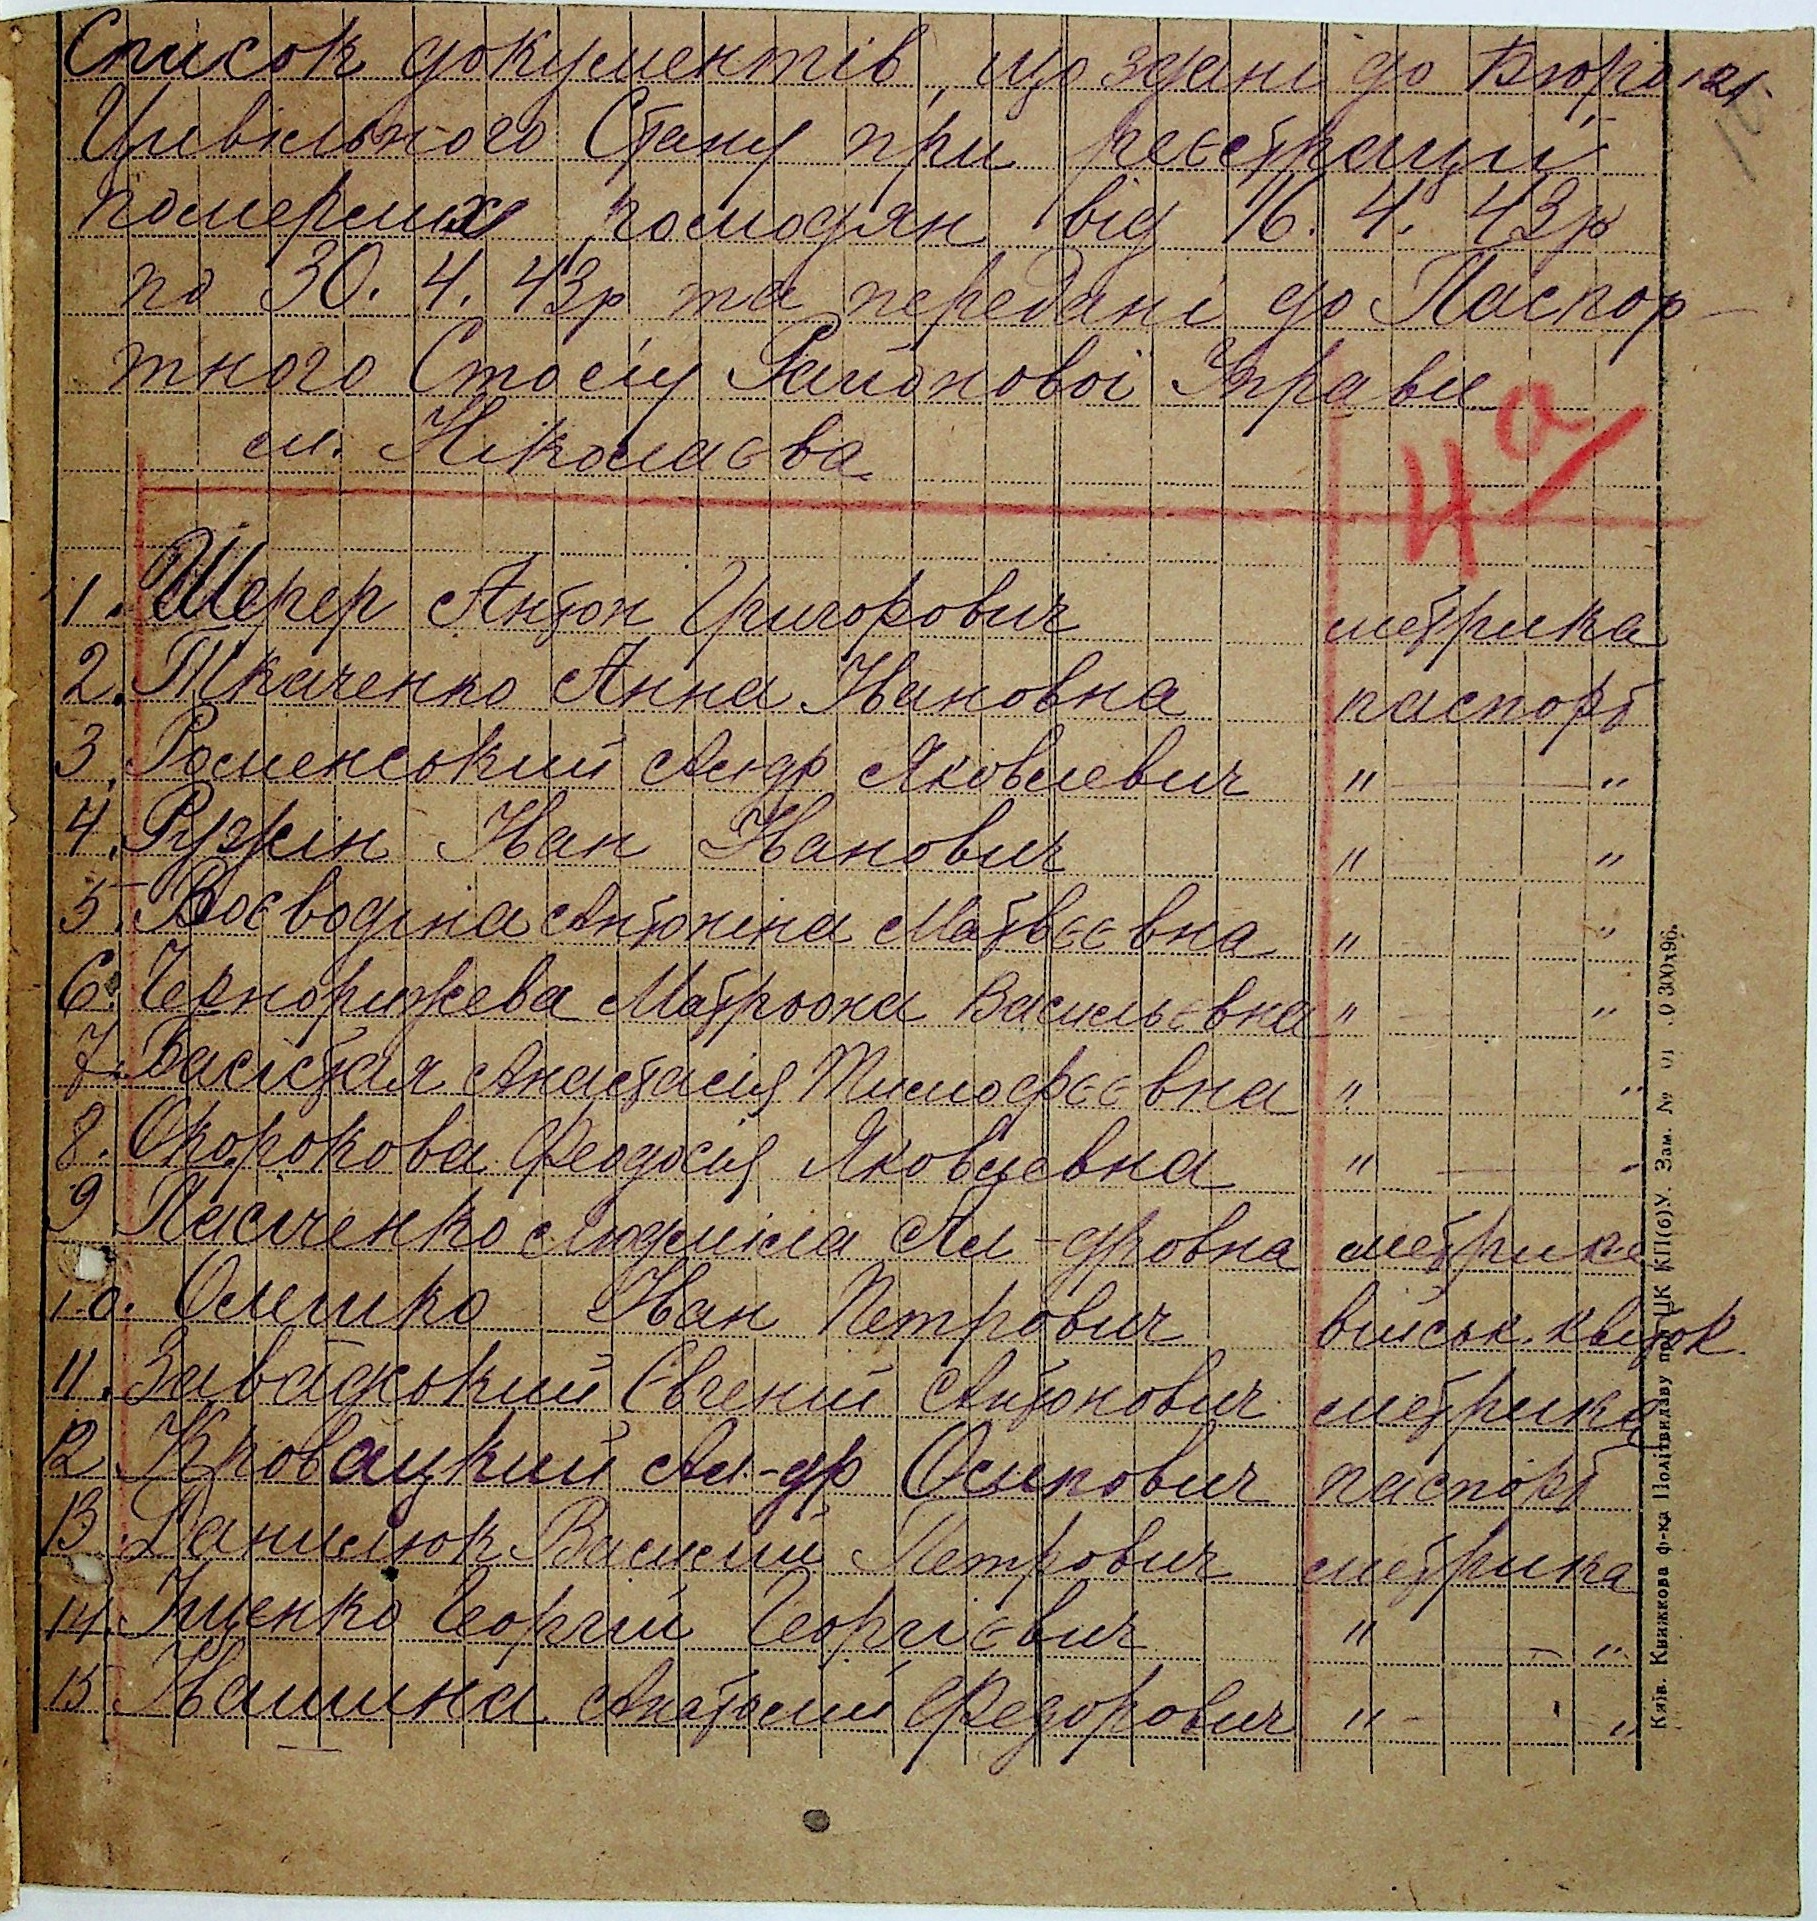 Список документів, що здані до Бюро
Цивільного Стану при реєстрації
померших громодян від 16. 4. 43р
по 30. 4. 43р та передані до Паспор-
тного Столу Районовоі Управи
м. Ніколаєва
4а
1. Шерер Антон Григорович метрика
2. Ткаченко Анна Івановна паспорт
3. Роменський Ал-др Яковлевич " — "
4. Ружін Іван Іванович " — "
5. Воєводіна Антоніна Матвєєвна " — "
6. Чернорижева Матрьона Васильєвна " — "
7. Басістая Анастасія Тимофєєвна " — "
8. Окорокова Феодосія Яковлєвна " — "
9. Пасіченко Людміла Ал-дровна метрика
10. Олешко Іван Петрович військ. квиток
11. Євгеній Антонович метрика
12. Кровацкий Ал-др Осипович паспорт
13. Данилюк Василий Петрович метрика
14. Іщенко Георгій Георгієвич " — "
15. Івашина Анатолий Федорович " — "
Київ. Книжкова ф-ка Політвидаву при ЦК КП(б)У. Зам. №